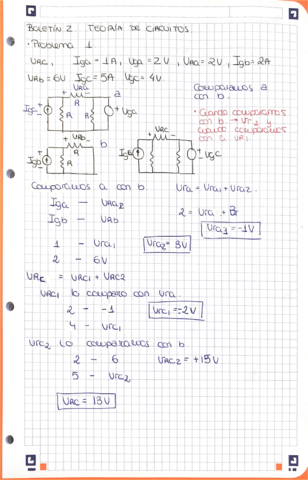 BOLETÍN 2 TEORÍA DE CIRCUITOS
· Problema 1
URC, Iga = 1A, Uga = 2V, URa = 2V, Igb = 2A
URb = 6V Igc = 5A Ugc = 4V
Comparamos a con b
· Cuando comparamos con b → Ur2 y cuando comparamos con a UR1
URa
a
Iga
R
R
Uga
URb
b
Igb
R
R
URc
Igc
Ugc
Comparamos a con b
Ura = Ura1 + Ura2
Iga — Ura2
Igb — URb
2 = Ura1 + 3
Ura1 = -1V
1 — Ura1
2 — 6V
Ura2 = 3V
URc = URC1 + URC2
URC1 lo comparo con Ura
2 — -1
4 — Urc1
Urc1 = -2V
Urc2 lo comparamos con b
2 — 6
5 — Urc2
URC2 = +15V
URC = 13V